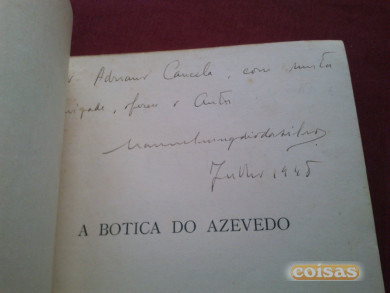 Adriano Cancela, com muita
amizade, oferece o Autor
Julho 1945
A BOTICA DO AZEVEDO
coisas